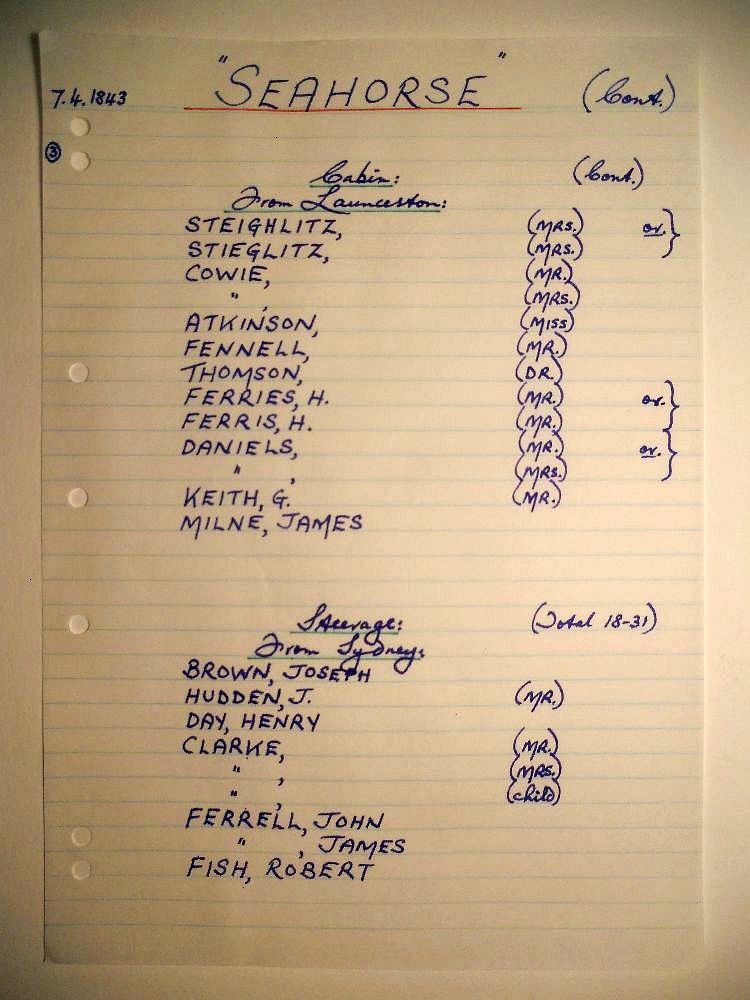 7.4.1843 "SEAHORSE" (Cont.)
③
Cabin: (Cont.)
From Launceston:
STEIGHLITZ, (MRS.) or. }
STIEGLITZ, (MRS.)
COWIE, (MR.)
" , (MRS.)
ATKINSON, (MISS)
FENNELL, (MR.)
THOMSON, (DR.)
FERRIES, H. (MR.) or. }
FERRIS, H. (MR.)
DANIELS, (MR.) or. }
" , (MRS.)
KEITH, G. (MR.)
MILNE, JAMES
Steerage: (Total 18-31)
From Sydney:
BROWN, JOSEPH
HUDDEN, J. (MR.)
DAY, HENRY
CLARKE, (MR.)
" , (MRS.)
" , (child)
FERRELL, JOHN
" , JAMES
FISH, ROBERT